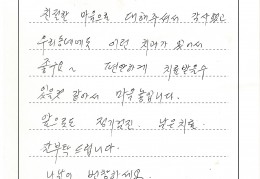 친절한 마음으로 대해주셔서 감사했고
우리동네에도 이런 치과가 있어서
좋수요~ 편안하게 치료받을수
있을것 같아서 마음놓입니다.
앞으로도 정기검진. 남은치료.
잘부탁드립니다.
나날이 번창하세요.